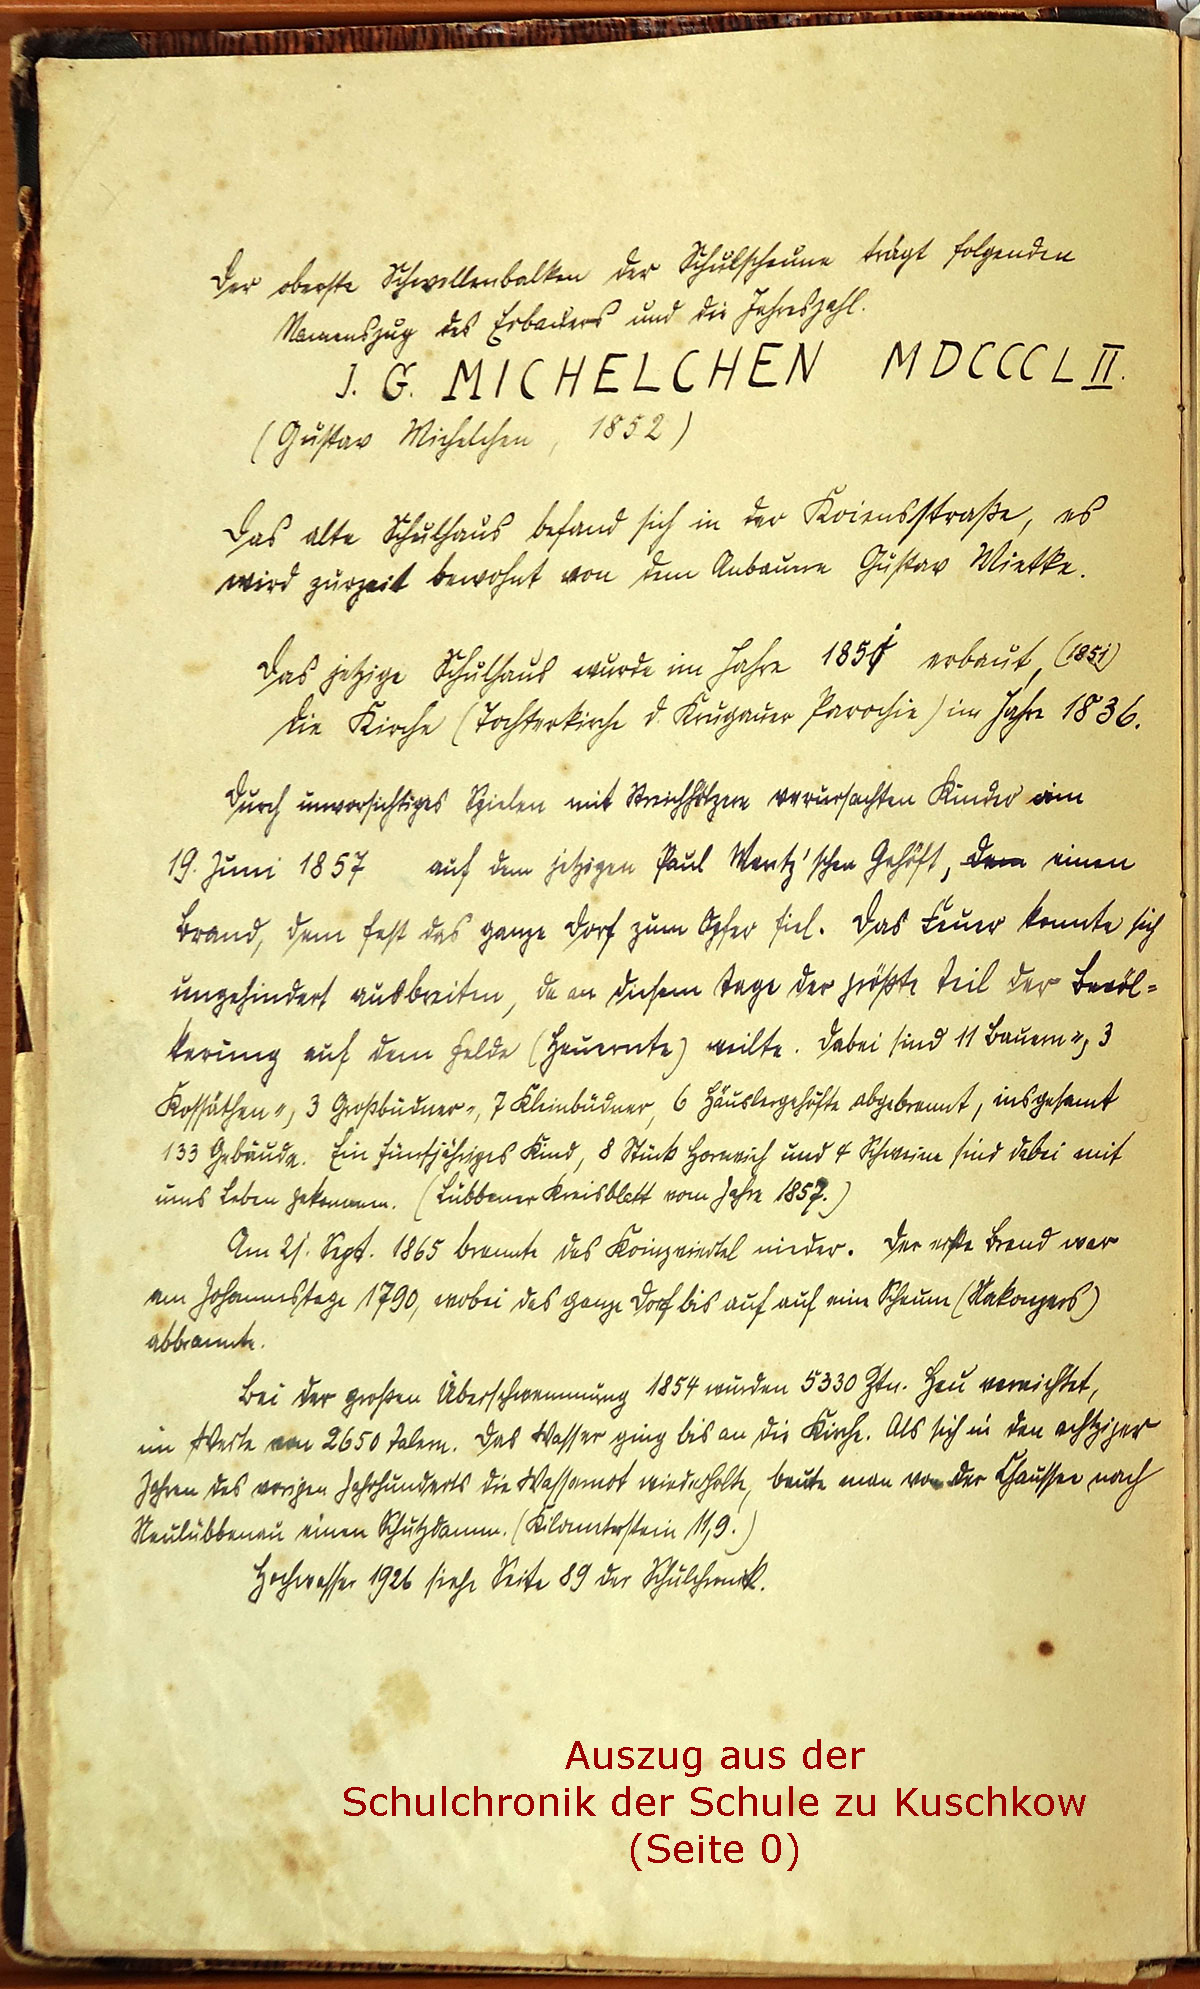 Der oberste Schwellenbalken der Schulscheune trägt folgenden
Namenszug des Erbauers und die Jahreszahl.
J. G. MICHELCHEN MDCCCLII.
(Gustav Michelchen, 1852)
Das alte Schulhaus befand sich in der Koiensstraße, es
wird zurzeit bewohnt von dem Anbauern Gustav Mietke.
Das jetzige Schulhaus wurde im Jahre 1851 erbaut, (1851)
die Kirche (Tochterkirche d. Krugauer Parochie) im Jahre 1836.
Durch unvorsichtiges Spielen mit Streichhölzern verursachten Kinder am
19. Juni 1857 auf dem jetzigen Paul Wentz'schen Gehöft, dem einen
Brand, dem fast das ganze Dorf zum Opfer fiel. Das Feuer konnte sich
ungehindert ausbreiten, da an diesem Tage der größte Teil der Bevöl-
kerung auf dem Felde (Heuernte) weilte. Dabei sind 11 Bauern-, 3
Kossäthen-, 3 Großbüdner-, 7 Kleinbüdner, 6 Häuslergehöfte abgebrannt, insgesamt
133 Gebäude. Ein fünfjähriges Kind, 8 Stück Hornvieh und 4 Schweine sind dabei mit
ums Leben gekommen. (Lübbener Kreisblatt vom Jahre 1857.)
Am 21. Sept. 1865 brannte das Koinzviertel nieder. Der erste Brand war
am Johannestage 1790, wobei das ganze Dorf bis auf auf eine Scheune (Nakonzers)
abbrannte.
Bei der großen Überschwemmung 1854 wurden 5330 Ztn. Heu vernichtet,
im Werte von 2650 Talern. Das Wasser ging bis an die Kirche. Als sich in den achtziger
Jahren des vorigen Jahrhunderts die Wassernot wiederholte, baute man von der Chaussee nach
Neulübbenau einen Schutzdamm. (Kilometerstein 11,9.)
Hochwasser 1926 siehe Seite 89 der Schulchronik.
Auszug aus der
Schulchronik der Schule zu Kuschkow
(Seite 0)